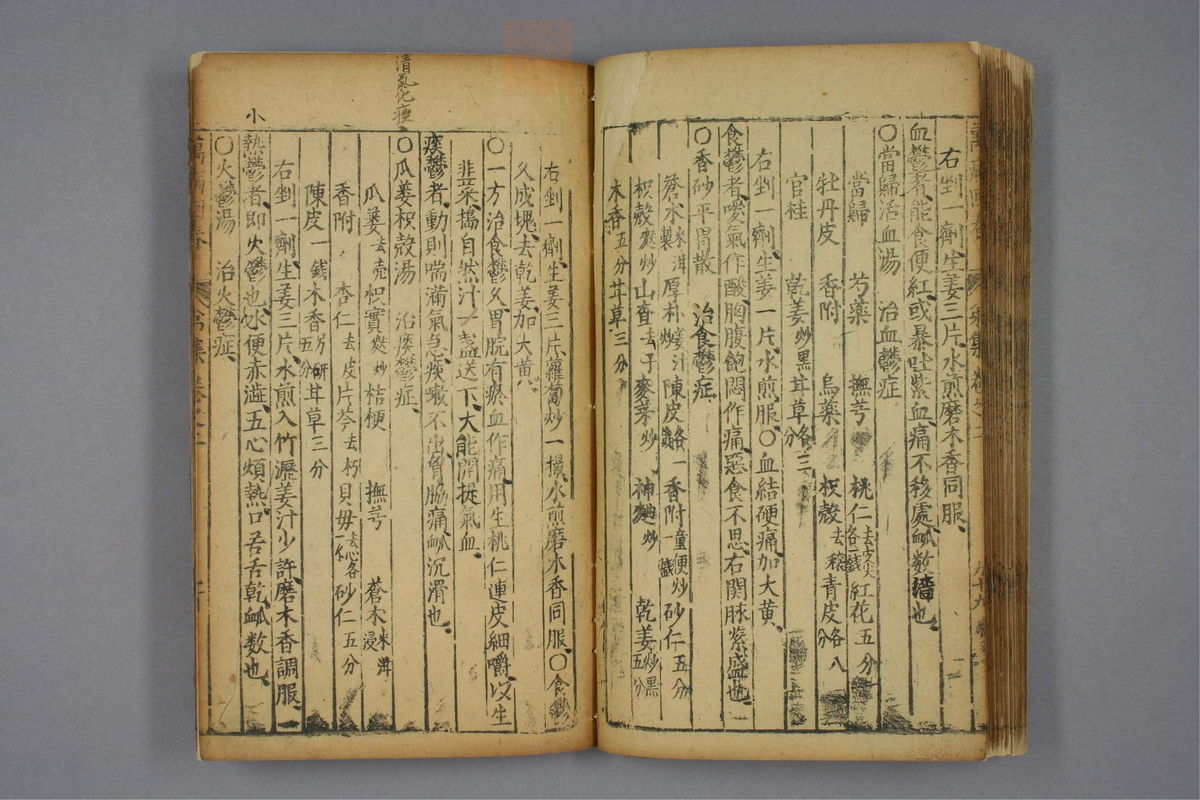 右剉一劑生姜三片水煎磨木香同服
血鬱者能食便紅或暴吐紫血痛不移處脉数濇也
○當歸活血湯 治血鬱症
當歸 芍藥 撫芎 桃仁去皮尖各一錢 紅花五分
牡丹皮 香附 烏藥 枳殼去穰 青皮各八分
官桂 乾姜炒黑 甘草各三分
右剉一劑生姜一片水煎服○血結硬痛加大黄
食鬱者噯氣作酸胸腹飽悶作痛惡食不思右関脉紧盛也
○香砂平胃散 治食鬱症
蒼朮米泔製 厚朴姜汁炒 陳皮各一錢 香附一錢童便炒 砂仁五分
枳殼麩炒 山查去子 麥芽炒 神麯炒 乾姜炒黑五分
木香五分 甘草三分
右剉一劑生姜三片蘿蔔炒一撮水煎磨木香同服○食鬱
久成塊去乾姜加大黄
○一方治食鬱久胃脘有瘀血作痛用生桃仁連皮細嚼以生
韭菜搗自然汁一盞送下大能開提氣血
痰鬱者動則喘滿氣急痰嗽不出胷脇痛脉沉滑也
清氣化痰
○瓜蔞枳殼湯 治痰鬱症
瓜蔞去壳 枳實麩炒 桔梗 撫芎 蒼朮米泔浸
香附 杏仁去皮 片芩去朽 貝毋去心各一錢 砂仁五分
陳皮一錢 木香五分另研 甘草三分
右剉一劑生姜三片水煎入竹瀝姜汁少許磨木香調服
小
熱鬱者即火鬱也小便赤澁五心煩熱口苦舌乾脉数也
○火鬱湯 治火鬱症
萬病回春